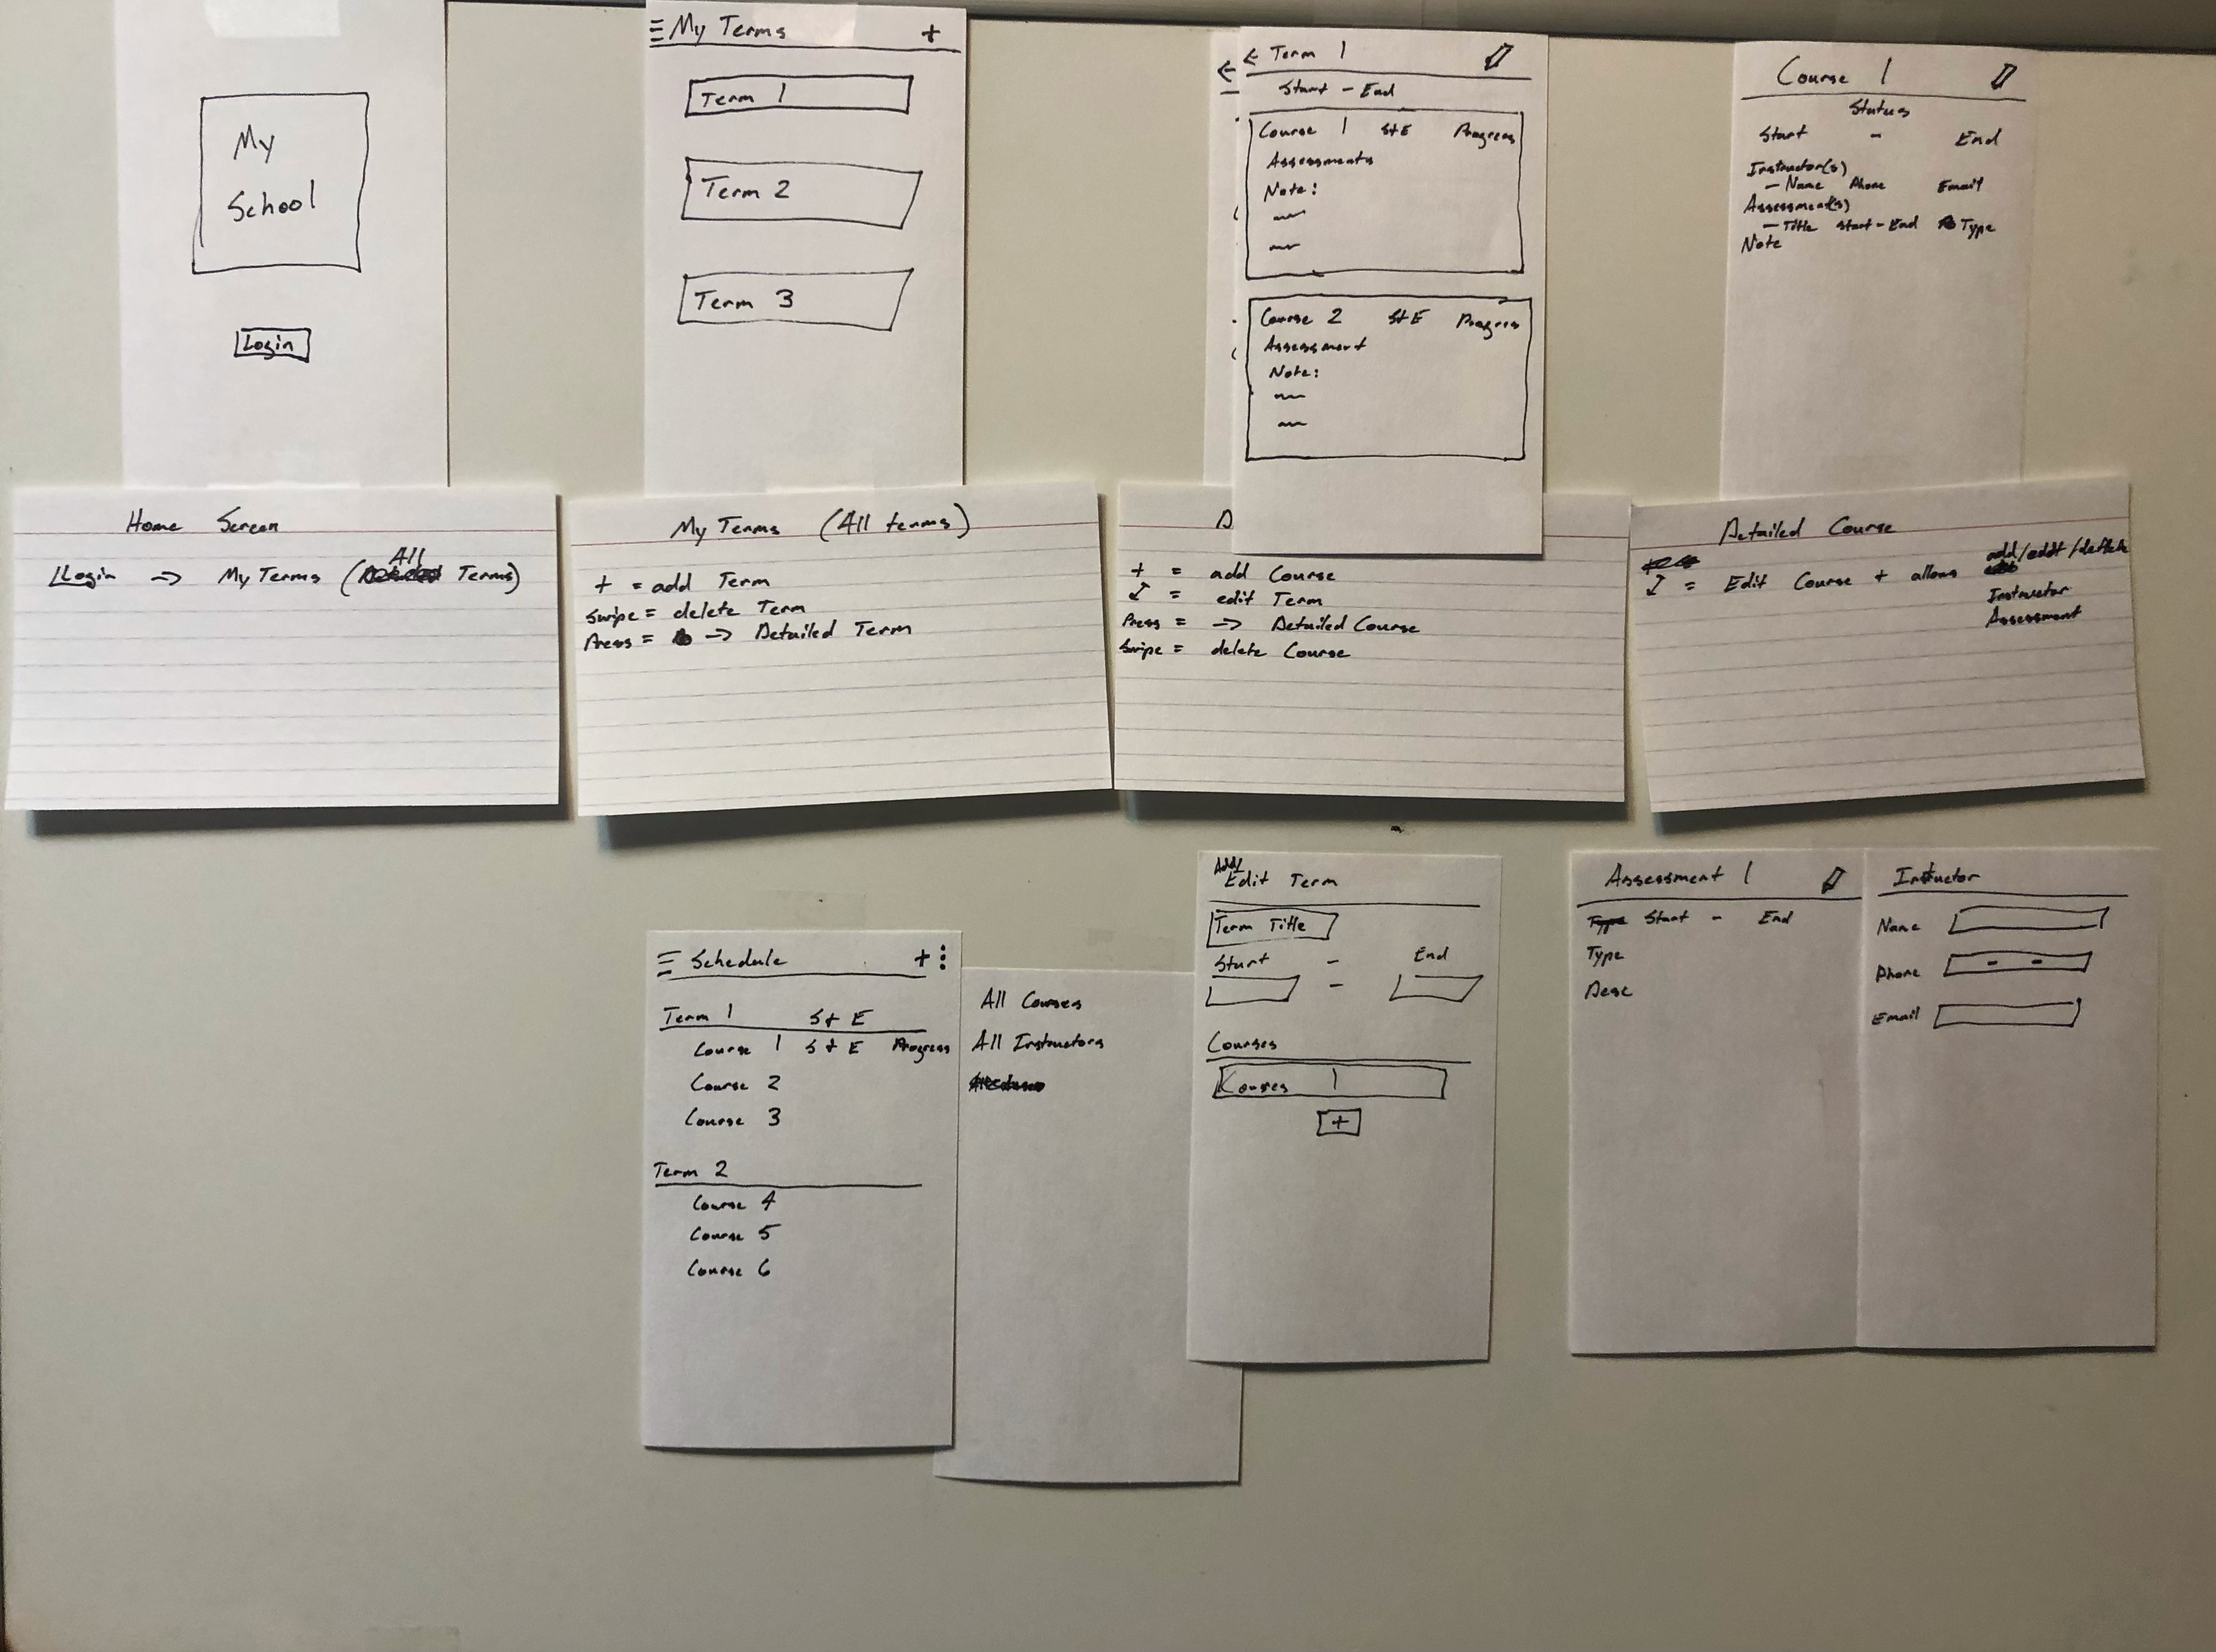 My
School
Login
My Terms +
Term 1
Term 2
Term 3
← Term 1
Start - End
Course 1 S+E Progress
Assessments
Note:
Course 2 S+E Progress
Assessment
Note:
Course 1
Status
Start - End
Instructor(s)
- Name Phone Email
Assessment(s)
- Title Start - End Type
Note
Home Screen
Login → My Terms (All Terms)
My Terms (All terms)
+ = add Term
Swipe = delete Term
Press = → Detailed Term
D
+ = add Course
= edit Term
Press = → Detailed Course
Swipe = delete Course
Detailed Course
= Edit Course + allows add/eddt/deflete
Instructor
Assessment
Schedule +
Term 1 S+E
Course 1 S+E Progress
Course 2
Course 3
Term 2
Course 4
Course 5
Course 6
All Courses
All Instructors
Add/
Edit Term
Term Title
Start - End
-
Courses
Courses 1
+
Assessment 1
Type Start - End
Type
Desc
Instuctor
Name
Phone - -
Email